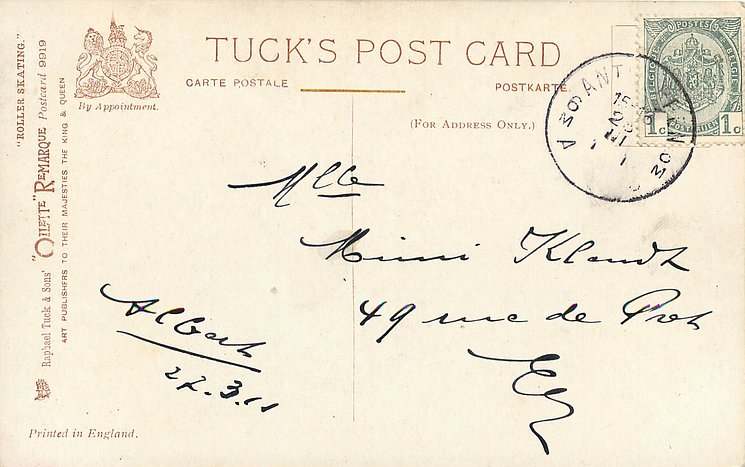 TUCK'S POST CARD
CARTE POSTALE
POSTKARTE.
(FOR ADDRESS ONLY.)
By Appointment.
"ROLLER SKATING."
Raphael Tuck & Sons' "OILETTE" REMARQUE Postcard 9919
ART PUBLISHERS TO THEIR MAJESTIES THE KING & QUEEN
POSTES
BELGIE
1c 1c
ANT
Mlle
Mimi
49 rue de
Albert
27.3.11
Printed in England.